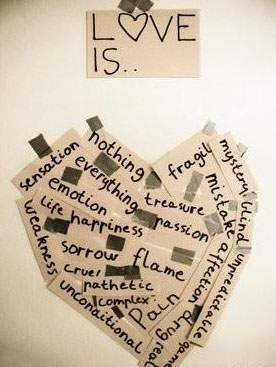 LOVE
IS..
nothing
sensation
everything
fragil
mystery
emotion
treasure
mistake
blind
life
happiness
passion
affection
unpredictable
weakness
sorrow
flame
cruel
pathetic
complex
pain
drug
real
game
unconditional